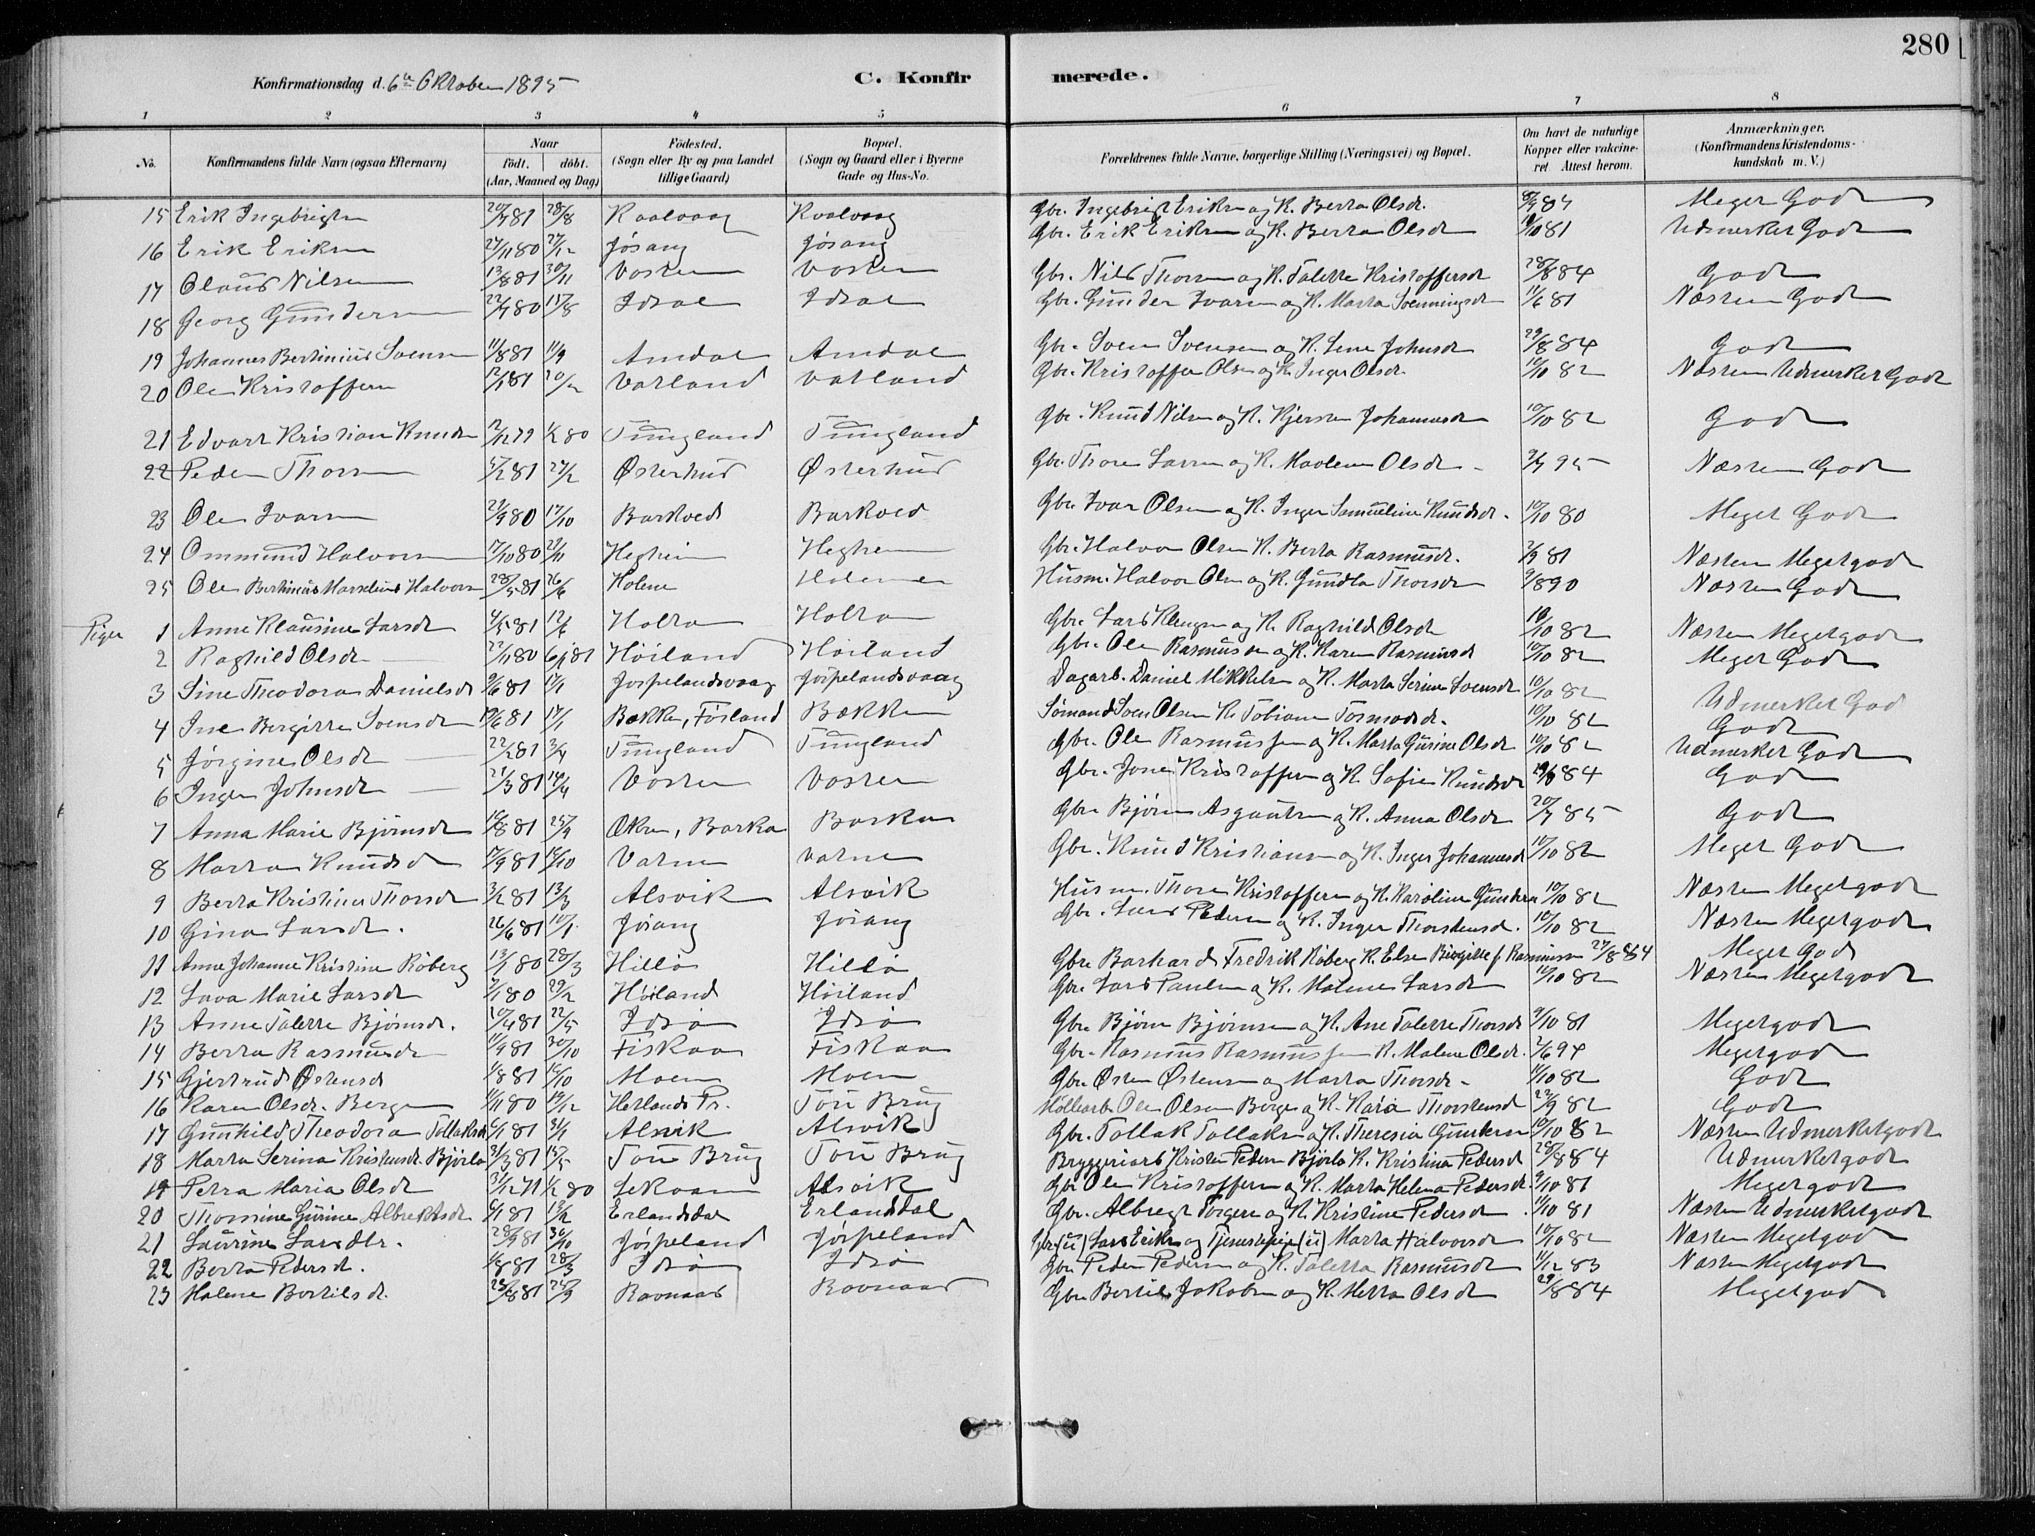 280
Konfirmationsdag d. 6te Oktober 1895
C. Konfirmerede.
1 2 3 4 5 6 7 8
No. Konfirmandens fulde Navn (ogsaa Efternavn) Naar født. døbt. (Aar, Maaned og Dag) Fødested. (Sogn eller By og paa Landet tillige Gaard) Bopæl. (Sogn og Gaard eller i Byerne Gade og Hus-No. Forældrenes fulde Navne, borgerlige Stilling (Næringsvei) og Bopæl. Om havt de naturlige Kopper eller vakcineret. Attest herom. Anmærkninger. (Konfirmandens Kristendomskundskab m. V.)
15 Erik Ingebrigtsn 20/7 81 28/8 Kvalvaag Kvalvaag Gbr. Ingebrigt Eriksn og K. Berta Olsdr. Meget Godt
16 Erik Eriksn 27/11 80 27/12 Jøsang Jøsang Gbr. Erik Eriksn og K. Berta Olsdr 81 Udmerket Godt
17 Olaus Nilsen 13/8 81 30/11 Voster Voster Gbr. Nils Thorsn og K. Talette Kristoffersdr 28/8 84 Godt
18 Georg Gundersn 22/7 80 15/8 Idsal Idsal Gbr. Gunder Ivarsn og K. Marta Svenningsdr 11/6 81 Næsten Godt
19 Johannes Bertinius Svensn 11/8 81 11/9 Amdal Amdal Gbr. Sven Svensen og K. Lene Johnsdr 29/8 84 Godt
20 Ole Kristoffersn 12/1 81 20/2 Vatland Vatland Gbr. Kristoffer Olsn og K. Inger Olsdr. 10/10 82 Næsten Udmerket Godt
21 Edvart Kristian Knudsn 12/12 79 1/2 80 Tungland Tungland Gbr. Knud Nilsn og K. Kjersten Johannesdr 10/10 82 Godt
22 Peder Thorsn 5/2 81 27/2 Østerhus Østerhus Gbr. Thore Larsn og K. Madlene Olsdr 95 Næsten Godt
23 Ole Ivarsn 29/9 80 17/10 Barkved Barkved Gbr. Ivar Olsen og K. Inger Samueline Knudsdr. 10/10 80 Meget Godt
24 Ommund Halvorsn 17/10 80 21/11 Heghein Heghem Gbr. Halvor Olsen K. Berta Rasmusdr. 2/9 81 Næsten Megetgodt
25 Ole Bertinius Marselius Halvorsn 28/5 81 26/6 Holene Holenen Husm. Halvor Olsn og K. Gundla Thorsdr 9/8 90 Næsten Godt
Piger 1 Anne Klausine Larsdr 4/5 81 12/6 Holta Holta Gbr. Lars Klungsn og K. Raghild Olsdr 10/10 82 Næsten Megetgodt
2 Raghild Olsdr 22/11 80 6/1 81 Høiland Høiland Gbr. Ole Rasmussn og K. Karen Rasmusdr 10/10 82 Meget Godt
3 Sine Theodora Danielsdr 9/6 81 17/7 Jørpelandsvaag Jørpelandsvaag Dagarb. Daniel Mikkelsn og K. Marta Serine Svensdr 10/10 82 Udmerket God
4 Ine Bergitte Svensdr 19/6 81 17/7 Bække, Fosland Bækken Sømand Sven Olsen K. Tobiane Tormodsdr. 10/10 82 Godt
5 Jørgine Olsdr 22/2 81 3/4 Tungland Tungland Gbr. Ole Rasmussen og K. Marta Gurine Olsdr 10/10 82 Udmerket Godt
6 Inger Johnsdr 21/3 81 14/4 Voster Voster Gbr. Jone Kristoffersn og K. Sofie Knudsdr 84 Godt
7 Anna Marie Bjørnsdr 18/8 81 25/9 Barka Barka Gbr Bjørn Asgautsn og K. Anna Olsdr 20/7 85 Godt
8 Marta Knudsdr 17/9 81 16/10 Vatne Vatne Gbr. Knud Kristiansn og K. Inger Johannesdr 10/10 82 Meget Godt
9 Berta Kristine Thorsdr 3/2 81 13/3 Alsvik Alsvik Husm. Thore Kristoffersn og K. Karoline Gundersn 10/10 82 Næsten Megetgodt
10 Gina Larsdr. 26/6 81 10/7 Jøsang Jøsang Gbr. Lars Pedersn og K. Inger Thorstensdr. 10/10 82 Næsten Megetgodt
11 Anne Johanne Kristine Røberg 13/1 80 28/3 Hille Hille Gbr. Barhard Fredrik Røberg K. Elsen Birgitte f. Rasmussn 27/8 84 Meget God
12 Lava Marie Larsdr 7/1 80 29/2 Høiland Høiland Gbr. Lars Paulsn og K. Malene Larsdr 10/10 82 Næsten Megetgodt
13 Anne Talette Bjørnsdr. 10/4 81 22/5 Idsø Idsø Gbr. Bjørn Bjørnsn og K. Ane Talette Thorsdr 9/10 81 Megetgodt
14 Berta Rasmusdr 11/9 81 30/10 Fiskaa Fiskaa Gbr. Rasmus Rasmussen K. Malene Olsdr. 7/6 94 Megetgodt
15 Gjertrud Østensd 1/8 81 16/10 Moen Moen Gbr. Østen Østensn og Marta Thorsdr. 11/10 82 Godt
16 Karen Olsdr. Berge 11/11 80 19/12 Hetlands Pr. Tou Brug Møllearb. Ole Olsen Berge og K. Kari Thorstensd 22/9 82 Godt
17 Gunhild Theodora Tollaksdr 6/1 81 31/1 Alsvik Alsvik Gbr. Tollak Tollaksn og K. Theresia Gundersn 10/10 82 Næsten Udmerketgodt
18 Marta Serina Kristensdr Bjørlo 31/3 81 15/5 Tou Brug Tou Brug Bryggeriarb Kristen Pedersn Bjørlo K. Kristina Pedersd 28/8 84 Udmerketgodt
19 Petra Maria Olsdr 31/12 71 1/2 80 Lekvam Alsvik Gbr Ole Kristoffersn og K. Marta Helena Pedersdr. 9/10 81 Megetgodt
20 Thomine Gurine Albrektsdr 6/1 81 13/2 Erlandsdal Erlandsdal Gbr. Albregt Torgersn og K. Kristine Pedersd 11/10 81 Næsten Udmerketgodt
21 Laurine Larsdtr. 28/9 81 30/10 Jørpeland Jørpeland Gbr (u) Lars Eriksn og Tjenestepige (u) Marta Halvorsdr 10/10 82 Næsten Megetgodt
22 Berta Pedersdr. 81 28/3 Idsø Idsø Gbr. Peder Pedersn og K. Talette Rasmusdr 11/12 83 Næsten Megetgodt
23 Malene Bertilsdr. 28/8 81 25/9 Ravnaas Ravnaas Gbr. Bertil Jakobsn og K. Metta Olsdr 29/8 84 Megetgodt